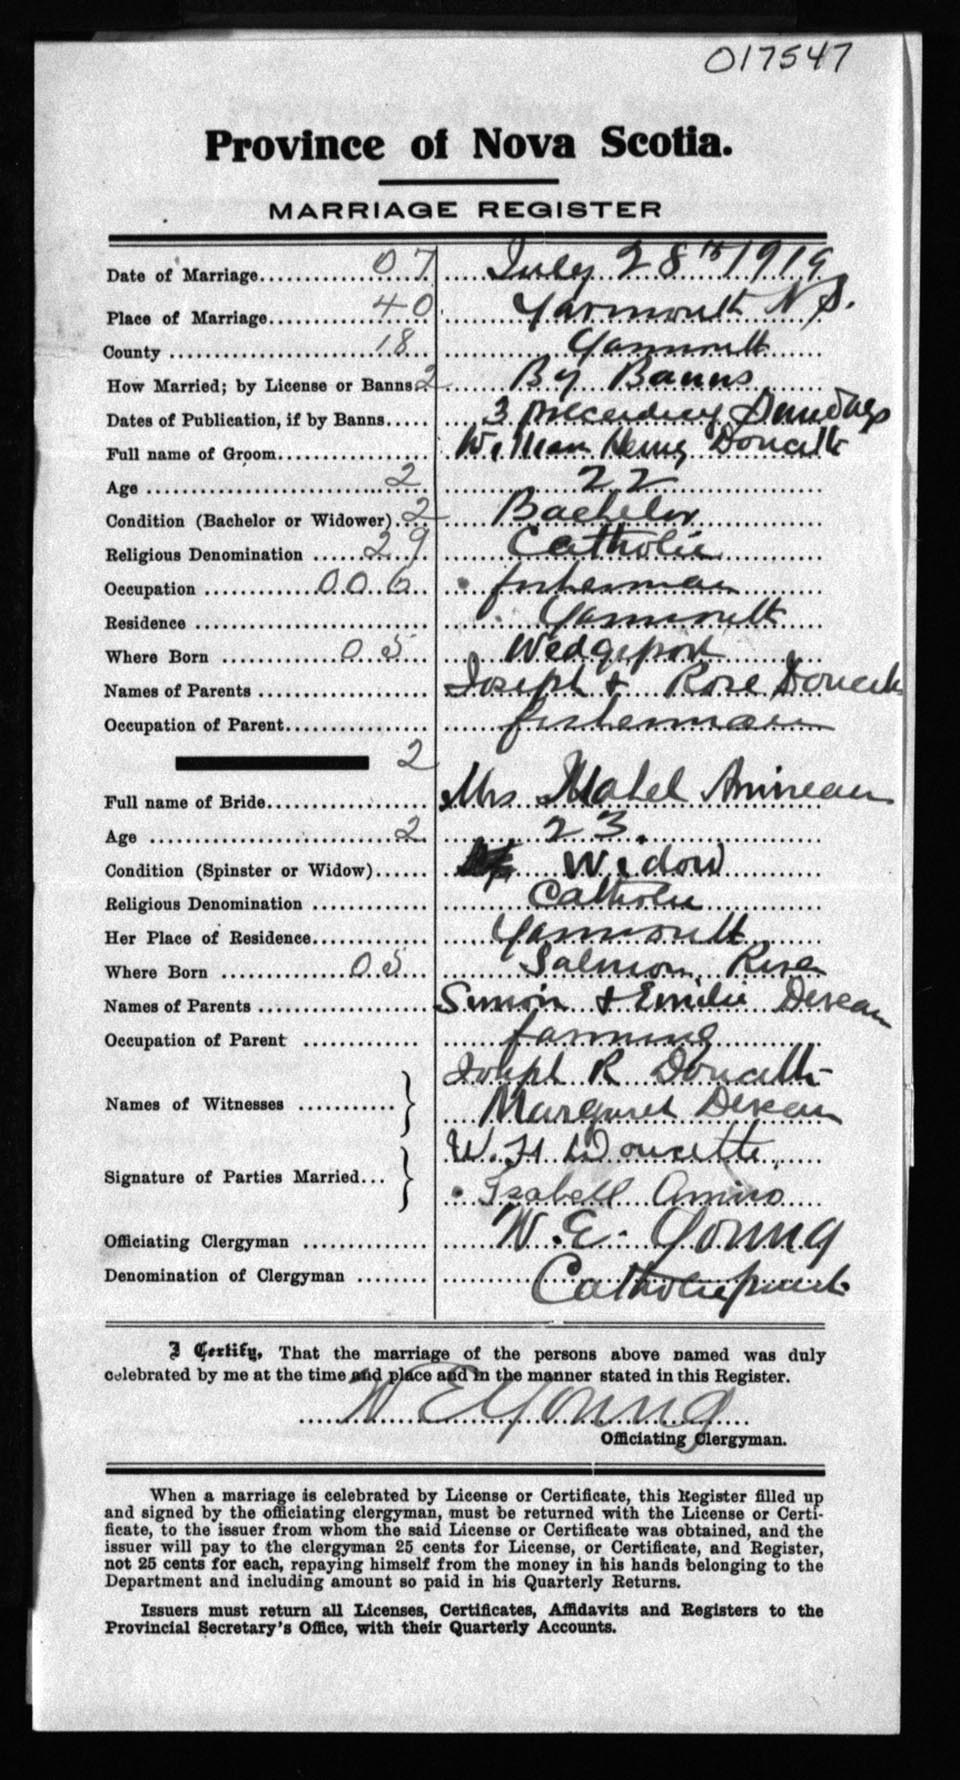 017547
Province of Nova Scotia.
MARRIAGE REGISTER
Date of Marriage 07 July 28th 1919
Place of Marriage 40 Yarmouth N S.
County 18 Yarmouth
How Married; by License or Banns 2 By Banns
Dates of Publication, if by Banns 3 preceeding Sundays
Full name of Groom William Henry Doucett
Age 2 22
Condition (Bachelor or Widower) 2 Bachelor
Religious Denomination 29 Catholic
Occupation 006 fisherman
Residence Yarmouth
Where Born 05 Wedgeport
Names of Parents Joseph + Rose Doucett
Occupation of Parent fisherman
2
Full name of Bride Mrs Mabel Amireau
Age 2 23.
Condition (Spinster or Widow) Widow
Religious Denomination Catholic
Her Place of Residence Yarmouth
Where Born 05 Salmon River
Names of Parents Simon + Emilie Deveau
Occupation of Parent farming
Names of Witnesses } Joseph R Doucett
Margaret Deveau
Signature of Parties Married } W. H Doucette
Isabell Amiro
Officiating Clergyman W. E. Young
Denomination of Clergyman Catholic priest
I Certify, That the marriage of the persons above named was duly
celebrated by me at the time and place and in the manner stated in this Register.
W E Young
Officiating Clergyman.
When a marriage is celebrated by License or Certificate, this Register filled up
and signed by the officiating clergyman, must be returned with the License or Certi-
ficate, to the issuer from whom the said License or Certificate was obtained, and the
issuer will pay to the clergyman 25 cents for License, or Certificate, and Register,
not 25 cents for each, repaying himself from the money in his hands belonging to the
Department and including amount so paid in his Quarterly Returns.
Issuers must return all Licenses, Certificates, Affidavits and Registers to the
Provincial Secretary's Office, with their Quarterly Accounts.